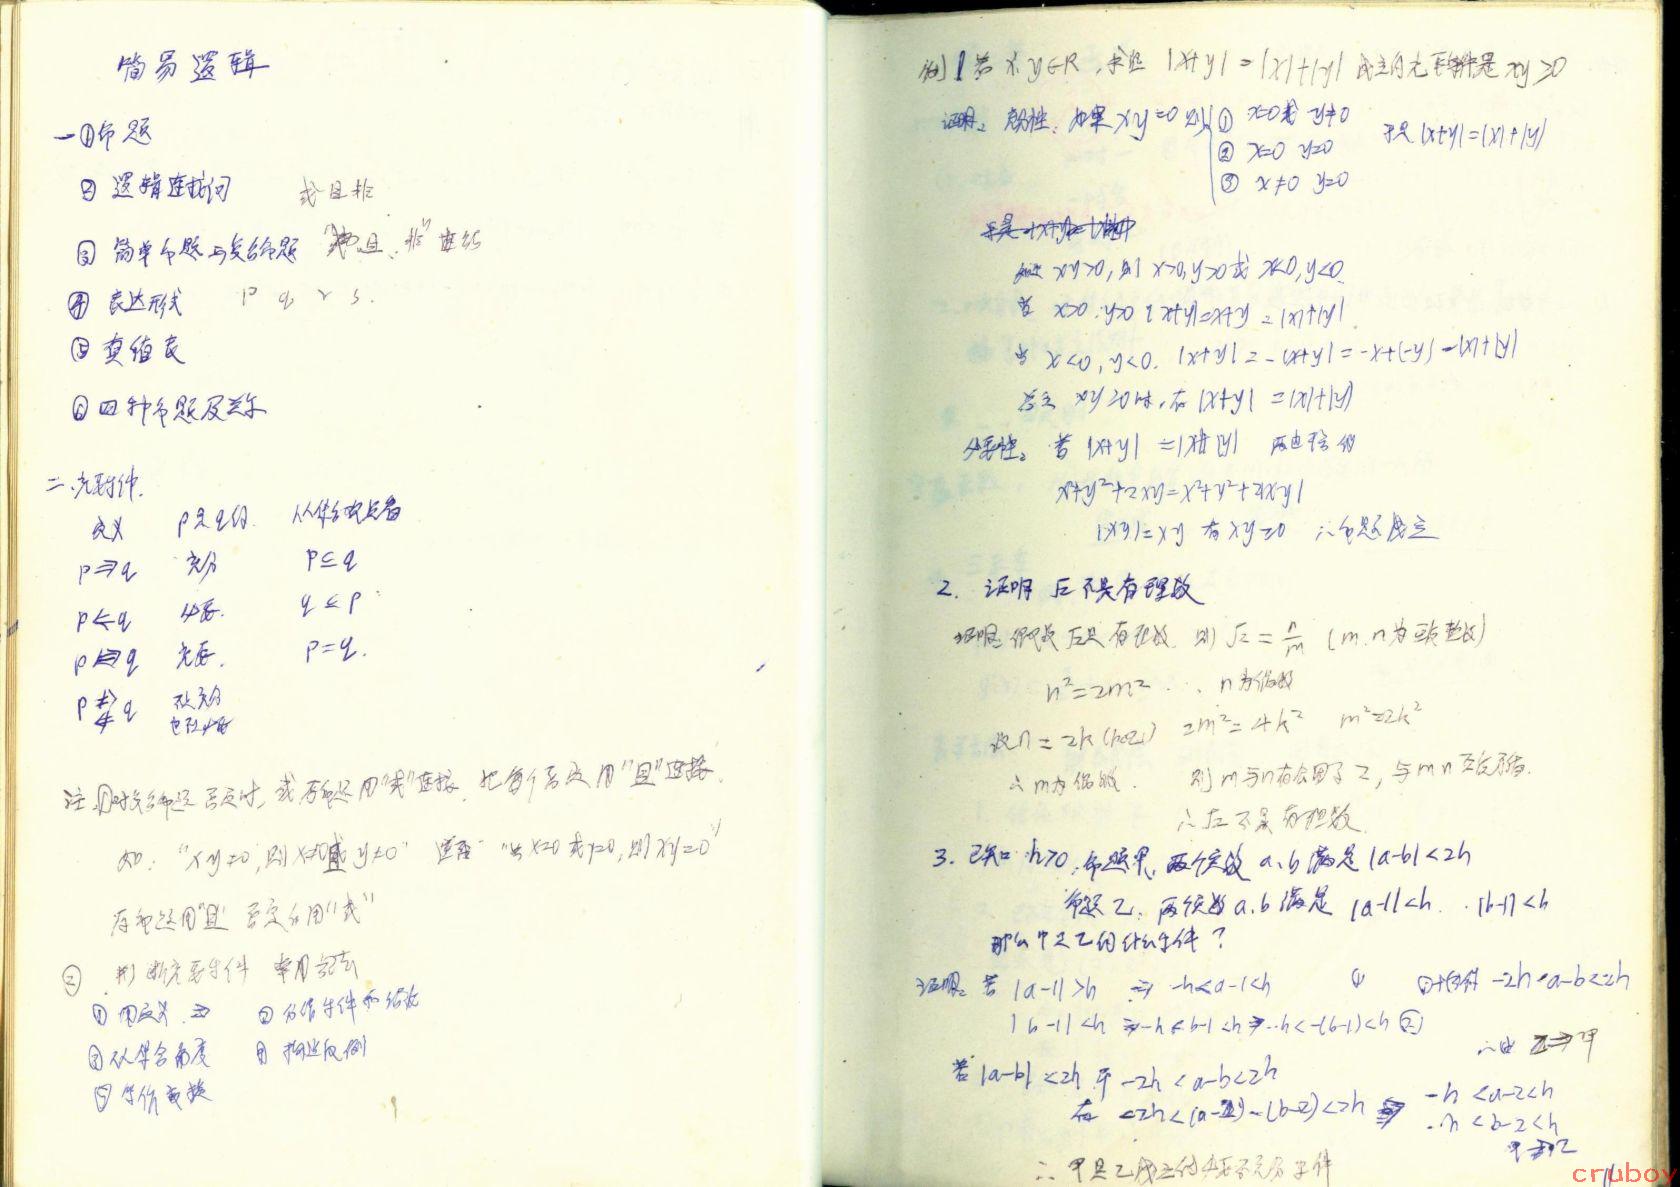 简易逻辑
一①命题
② 逻辑连接词 或 且 非
③ 简单命题与复合命题 "或、且、非" 连结
④ 表达形式 p q r s.
⑤ 真值表
⑥ 四种命题及关系
二、充要条件.
定义 p是q的. 从集合观点看
p⇒q 充分 p⊆q
p⇐q 必要. q⊆p
p⇔q 充要. p=q.
p⇏q 不充分
⇍ 也不必要
注.①对复合命题否定时, 或命题用"或"连接, 把每个否定用"且"连接.
如: "xy≠0, 则x≠0且y≠0" 逆否 "当x=0或y=0, 则xy=0"
存命题用"且" 否定们用"或"
② 判断充要条件 常用方法
① 用定义 ⇒ ② 分清条件和结论
③ 从集合角度 ④ 构造反例
⑤ 等价变换
例1 若x.y∈R, 求证 |x+y|=|x|+|y| 成立的充要条件是xy≥0
证明: 充分性: 如果xy=0 则 ① x=0或 y≠0 于是|x+y|=|x|+|y|
② x=0 y=0
③ x≠0 y=0
如果 xy>0, 则 x>0,y>0 或 x<0,y<0.
当 x>0.y>0 |x+y|=x+y=|x|+|y|
当 x<0,y<0. |x+y|=-(x+y)=-x+(-y)=|x|+|y|
总之 xy≥0时,有|x+y|=|x|+|y|
必要性: 若|x+y|=|x|+|y| 两边平方得
x²+y²+2xy=x²+y²+2|xy|
|xy|=xy 有xy≥0 ∴命题成立
2. 证明 √2不是有理数
证明: 假设√2是有理数. 则√2=n/m (m.n为互质整数)
n²=2m² ∴ n为偶数
设n=2k(k∈Z) 2m²=4k² m²=2k²
∴m为偶数. 则m与n有公因子2, 与m n互质矛盾.
∴√2不是有理数.
3. 已知 h>0, 命题甲: 两个实数a.b满足|a-b|<2h
命题乙: 两个实数a.b满足 |a-1|<h. |b-1|<h
那么甲是乙的什么条件?
证明: 若 |a-1|>h ⇒ -h<a-1<h ① ①+②得 -2h<a-b<2h
|b-1|<h ⇒ -h<b-1<h ⇒ -h<-(b-1)<h ②
∴由 乙⇒甲
若|a-b|<2h 于 -2h<a-b<2h
有 -2h<(a-2)-(b-2)<2h ⇏ -h<a-2<h
-h<b-2<h
甲⇏乙
∴ 甲是乙成立的必要不充分条件
cruboy